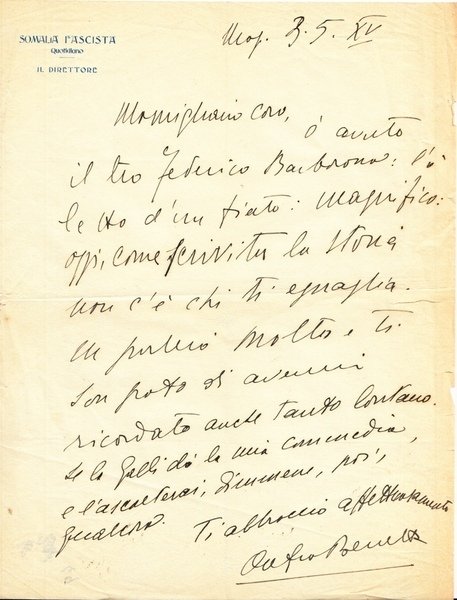 SOMALIA FASCISTA
Quotidiano
IL DIRETTORE
Mog. 3.5.XV
Momigliano caro,
ò avuto
il tuo Federico Barbarossa: l'ò
letto d'un fiato: magnifico:
oggi, come scrivi tu la storia
non c'è chi ti eguaglia.
molto e ti
son grato di avermi
ricordato anche tanto lontano.
Se la Galli dà la mia commedia
e l'ascolterai, dimmene, poi,
qualcosa. Ti abbraccio affettuosamente